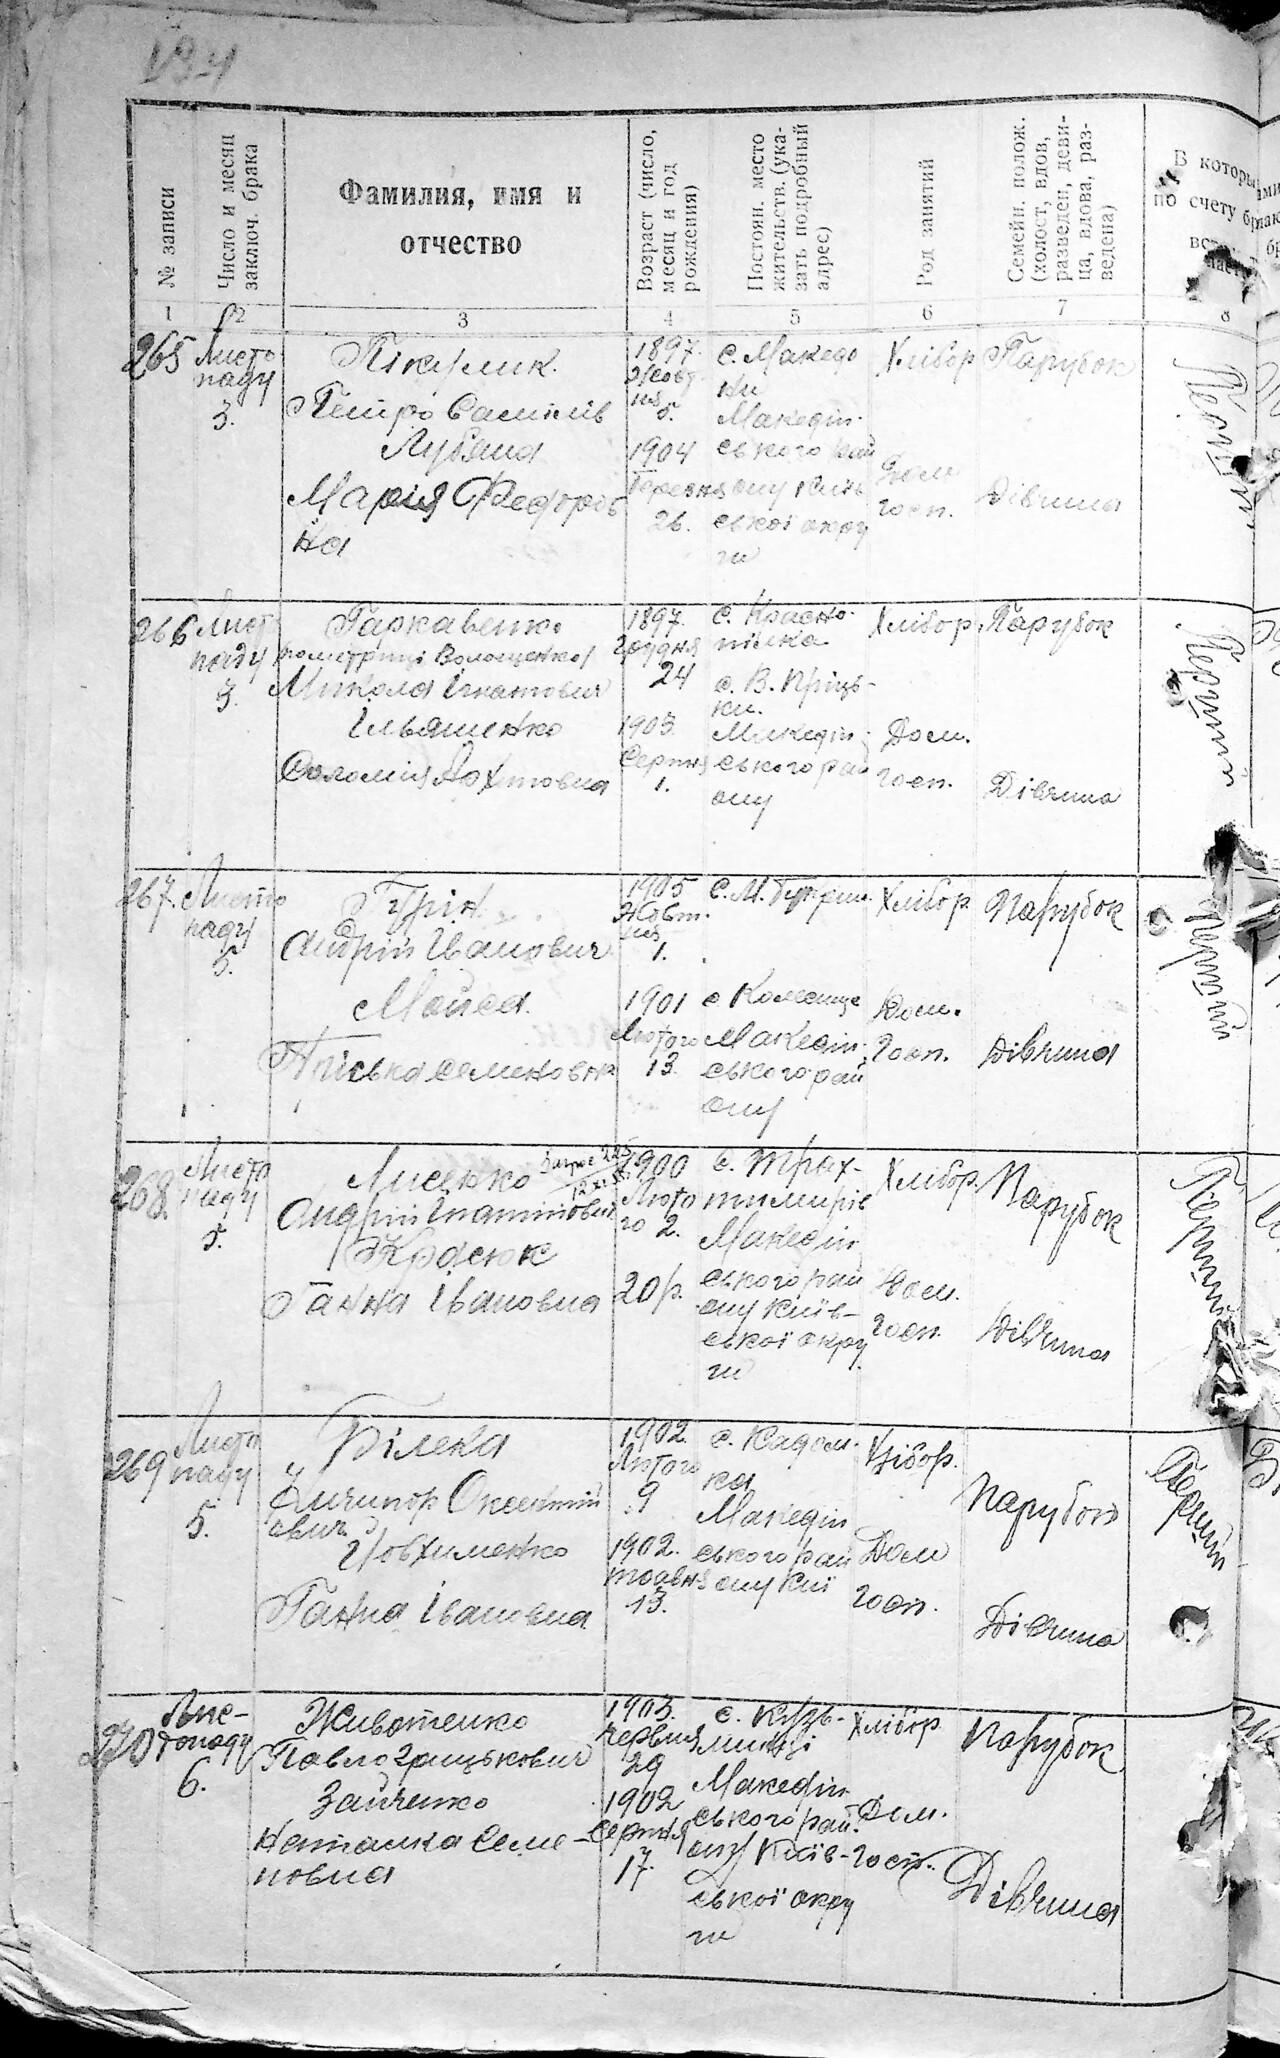 134
№ записи
Число и месяц заключ. брака
Фамилия, имя и отчество
Возраст (число, месяц и год рождения)
Постоян. место жительств. (указать подробный адрес)
Род занятий
Семейн. полож. (холост, вдов, разведен, девица, вдова, разведена)
В которы
по счету бр
1 2 3 4 5 6 7 8
265 Листо
паду
3.
Пікулик.
Петро Самійлів
Марія Федоров
на
1897.
Жовт
ня
5.
1904
Березня
26.
с. Македо
ни
Македін-
ського рай
ону Київ
ської окру
ги
Хлібор
Дом.
госп.
Парубок
Дівчина
266 Лист
паду
3.
Гаркавенко
Микола Ігнатович
Ільяшенко
Соломія
1897.
Грудня
24
1903.
Серпня
1.
с. Красно
пілка
с. В. Пріць-
ки.
Македін
ського рай
ону
Хлібор.
Дом.
госп.
Парубок
Дівчина
Перший
267. Листо
паду
5.
Андрій Іванович
Пріська Семеновна
1905
Жовт.
ня
1.
1901
Лютого
13.
с. М. Букрин.
с. Колесище
Македін-
ського рай
ону
Хлібор
Дом.
госп.
Парубок
Дівчина
Перший
268. Листо
паду
5.
Лисенко
Андрій
Красюк
Ганна Івановна
1900
Люто
го 2.
20 р.
с. Трах-
тимирів
Македін
ського рай
ону Київ-
ської окру
ги
Хлібор.
Дом.
госп.
Парубок
Дівчина
Перший
269 Листо
паду
5.
Білека
Ничипор Оксентий
евич
Йовхименко
Ганна Івановна
1902.
Лютого
9
1902.
травня
13.
с. Кадом-
ка
Македін
ського рай
ону Киї
Хлібор.
Дом
госп.
Парубок
Дівчина
Перший
270 Лис-
топаду
6.
Животенко
Павло Грицькович
Зайченко
Наталка Семе-
новна
1903.
Червня
29
1902
Серпня
17.
с. Кузь-
минці
Македін
ського рай-
ону Київ-
ської окру
ги
Хлібор
Дом.
Госп.
Парубок
Дівчина